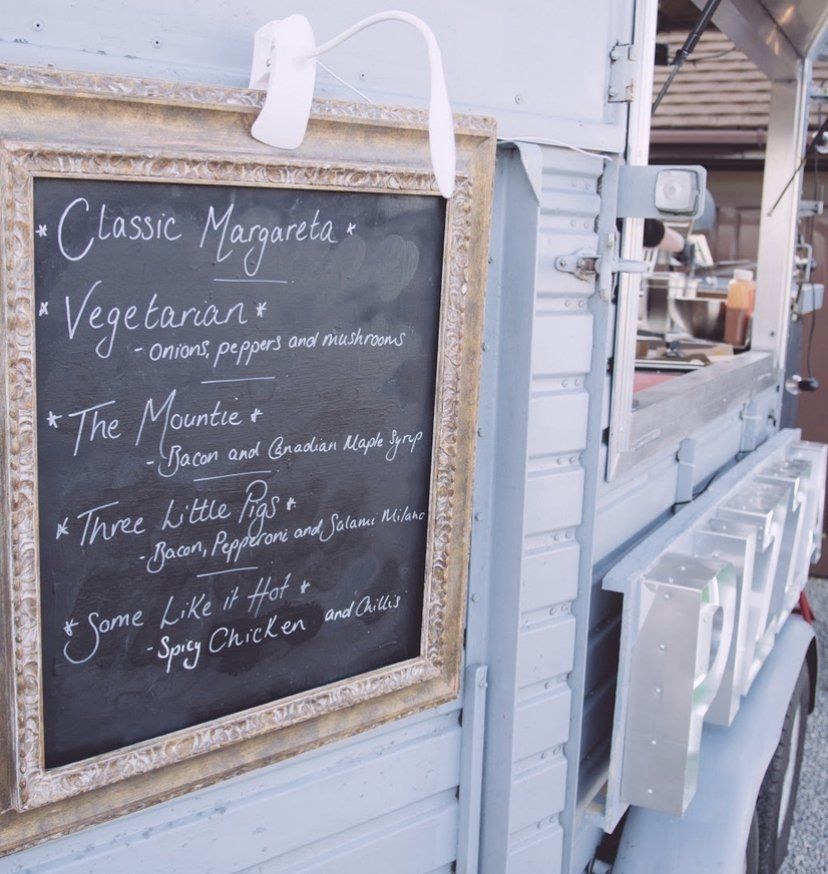 * Classic Margareta *
* Vegetarian *
- Onions, peppers and mushrooms
* The Mountie *
- Bacon and Canadian Maple Syrup
* Three Little Pigs *
- Bacon, Pepperoni and Salami Milano
* Some Like it Hot *
- Spicy Chicken and Chilli's